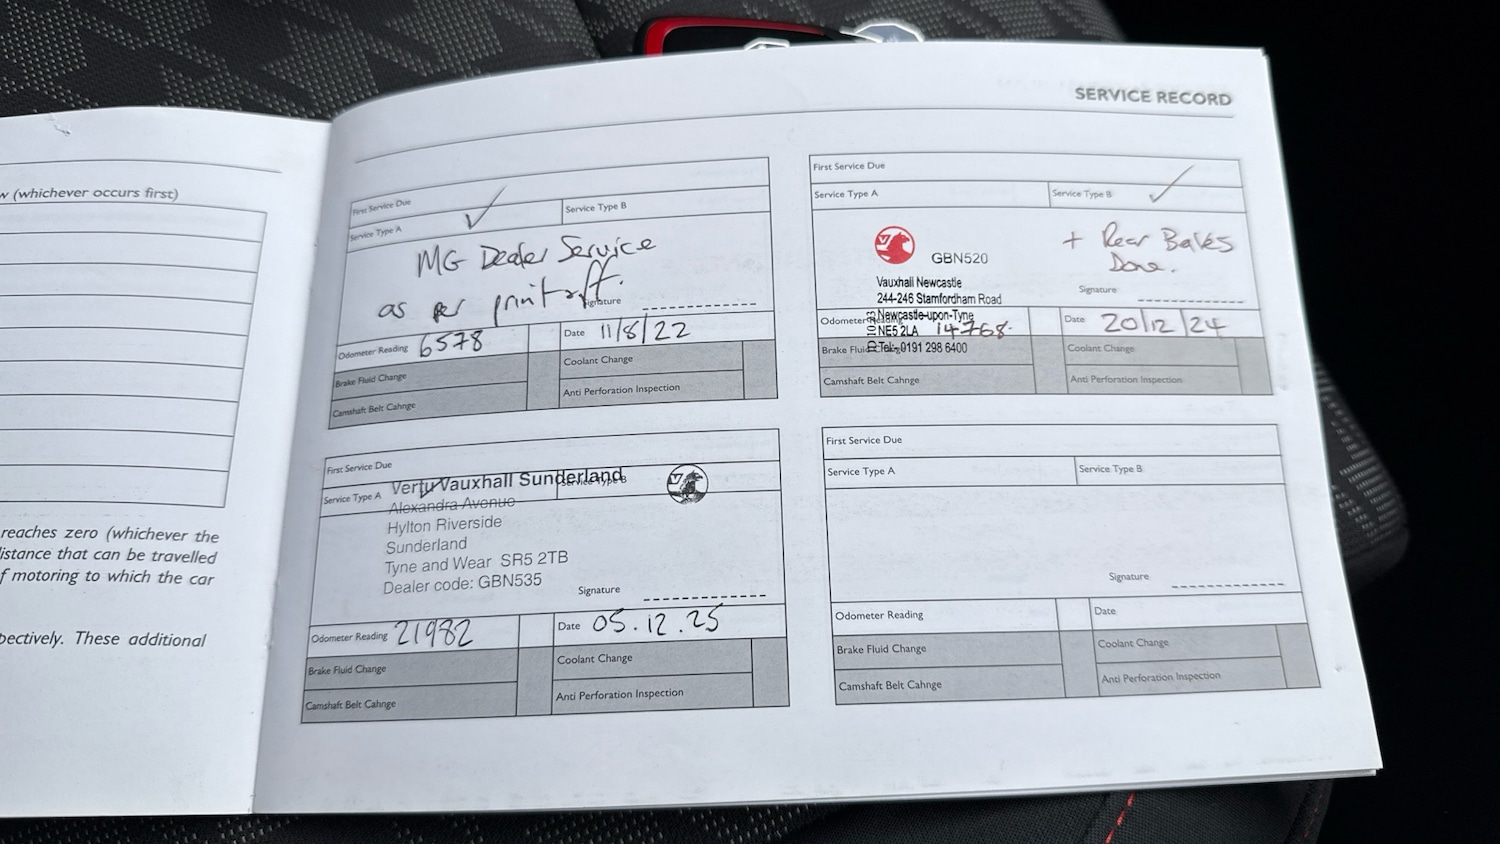 w (whichever occurs first)
reaches zero (whichever the
istance that can be travelled
f motoring to which the car
pectively. These additional
SERVICE RECORD
First Service Due
Service Type A
Service Type B
MG Dealer Service
as per printoff.
Signature
Odometer Reading 6578
Date 11/8/22
Brake Fluid Change
Coolant Change
Camshaft Belt Cahnge
Anti Perforation Inspection
First Service Due
Service Type A
Service Type B
GBN520
+ Rear Bakes
Done.
Vauxhall Newcastle
244-246 Stamfordham Road
Newcastle-upon-Tyne
NE5 2LA
Tel: 0191 298 6400
Signature
Odometer Reading 14768.
Date 20/12/24
Brake Fluid
Coolant Change
Camshaft Belt Cahnge
Anti Perforation Inspection
First Service Due
Service Type A
Service Type B
Vertu Vauxhall Sunderland
Alexandra Avenue
Hylton Riverside
Sunderland
Tyne and Wear SR5 2TB
Dealer code: GBN535
Signature
Odometer Reading 21982
Date 05.12.25
Brake Fluid Change
Coolant Change
Camshaft Belt Cahnge
Anti Perforation Inspection
First Service Due
Service Type A
Service Type B
Signature
Odometer Reading
Date
Brake Fluid Change
Coolant Change
Camshaft Belt Cahnge
Anti Perforation Inspection